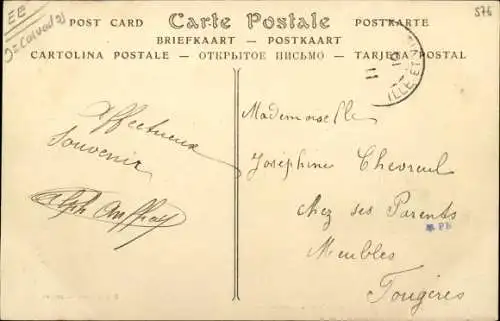 EE
J= Calvados
576
POST CARD Carte Postale POSTKARTE
BRIEFKAART - POSTKAART
CARTOLINA POSTALE - ОТКРЫТОЕ ПИСЬМО - TARJETA POSTAL
ILLE-ET-VI
Affectueux
Souvenir
Mademoiselle
Joséphine Chevreul
chez ses Parents
Meubles
Fougères